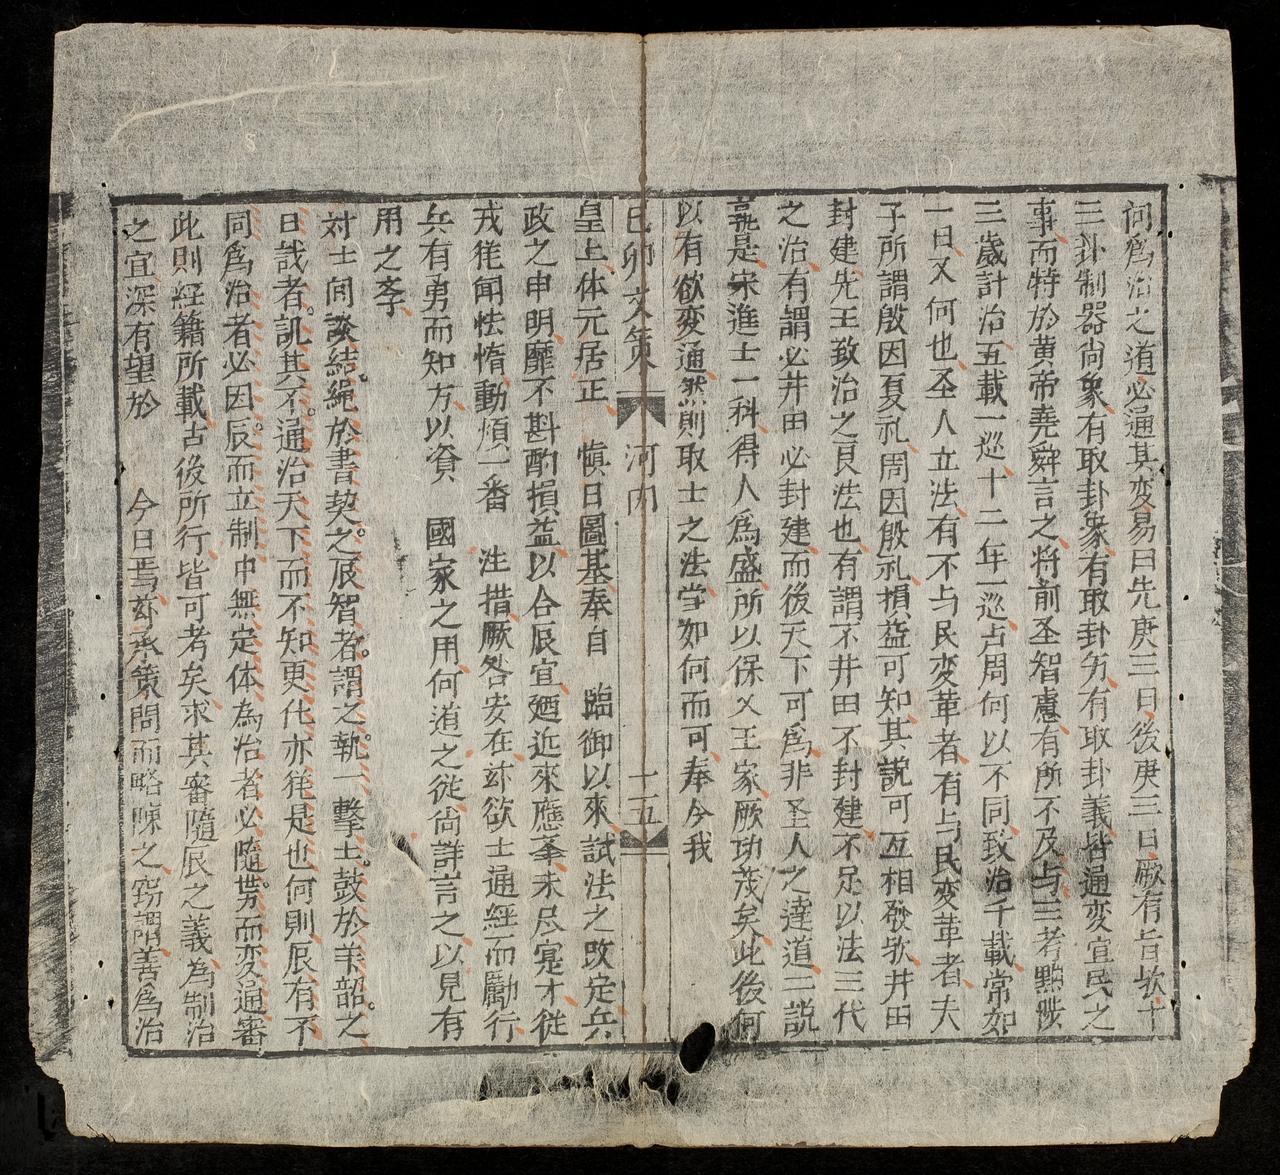 問爲治之道必通其变易曰先庚三日後庚三日厥有旨欤十
三卦制器尚象有取卦象有取卦名有取卦義皆通变宜民之
事而特於黄帝堯舜言之将前圣智慮有所不及与三考黜陟
三歲計治五載一巡十二年一巡占周何以不同致治千載常如
一日又何也圣人立法有不与民变革者有与民变革者夫
子所謂殷因夏礼周因殷礼損益可知其説可互相發欤井田
封建先王致治之良法也有謂不井田不封建不足以法三代
之治有謂必井田必封建而後天下可爲非圣人之達道二説
孰是宋進士一科得人爲盛所以保乂王家厥功茂矣此後何
以有欲变通然則取士之法當如何而可奉今我
己卯文策 河内 十五
皇上体元居正 慎日圖基奉自 臨御以來試法之改定兵
政之申明靡不斟酌損益以合辰宜廼近來應峯未尽寔才從
戎徃闻怯惰動煩一番 注措厥咎安在玆欲士通經而勵行
兵有勇而知方以資 國家之用何道之從尚詳言之以見有
用之斈
対士闻談結䋲於書契之辰智者謂之執一擊土鼓於韶之
日哉者訊其不通治天下而不知更化亦徃是也何則辰有不
同爲治者必因辰而立制中無定体為治者必隨势而变通審
此則經籍所載古後所行皆可考矣求其審隨辰之義為制治
之宜深有望於 今日焉玆承策問而略陳之窃謂善為治